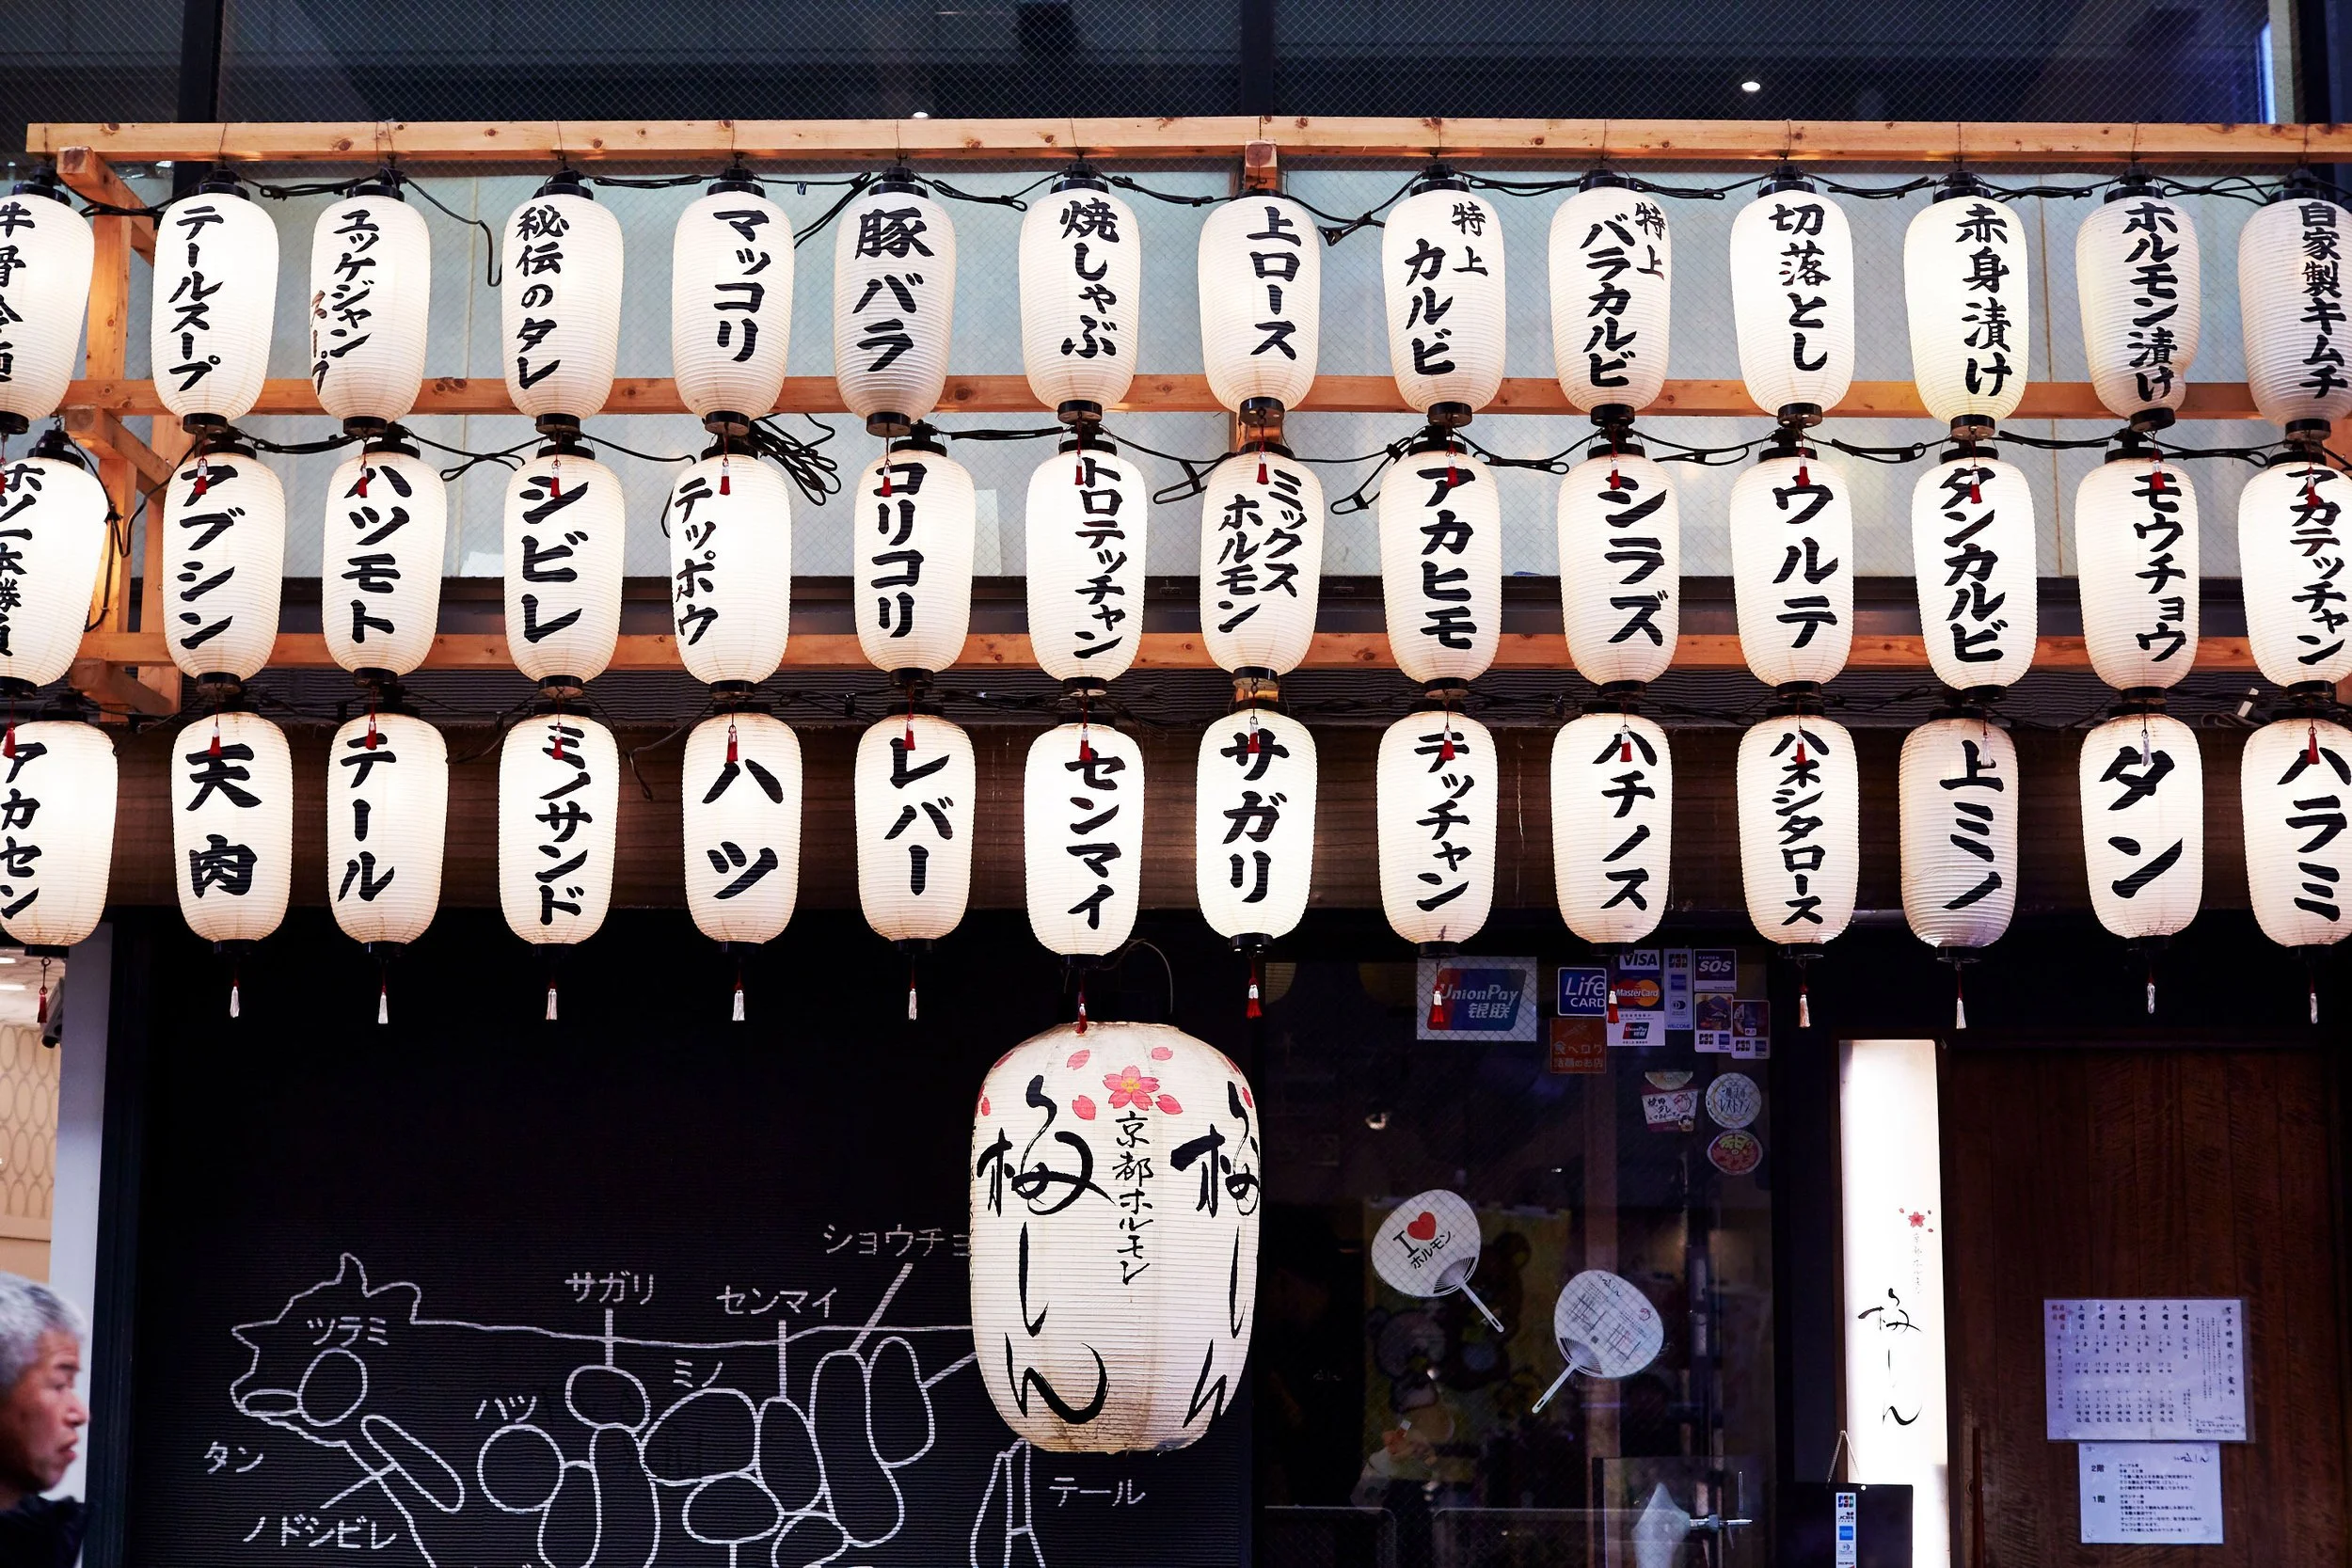 テールスープ
ユッケジャンスープ
秘伝のタレ
マッコリ
豚バラ
焼しゃぶ
上ロース
特上カルビ
特上バラカルビ
切落とし
赤身漬け
ホルモン漬け
自家製キムチ
アブシン
ハツモト
シビレ
テッポウ
コリコリ
トロテッチャン
ミックスホルモン
アカヒモ
シラズ
ウルテ
タンカルビ
モウチョウ
アカテッチャン
アカセン
天肉
テール
ミノサンド
ハツ
レバー
センマイ
サガリ
テッチャン
ハチノス
ハネシタロース
上ミノ
タン
ハラミ
UnionPay
银联
Life
CARD
VISA
MasterCard
SOS
食べログ
京都ホルモン
梅しん
梅しん
I ♥
ホルモン
梅しん
ショウチョ
サガリ
センマイ
ツラミ
ミノ
ハツ
タン
ノドシビレ
テール
営業時間のご案内
2階
1階